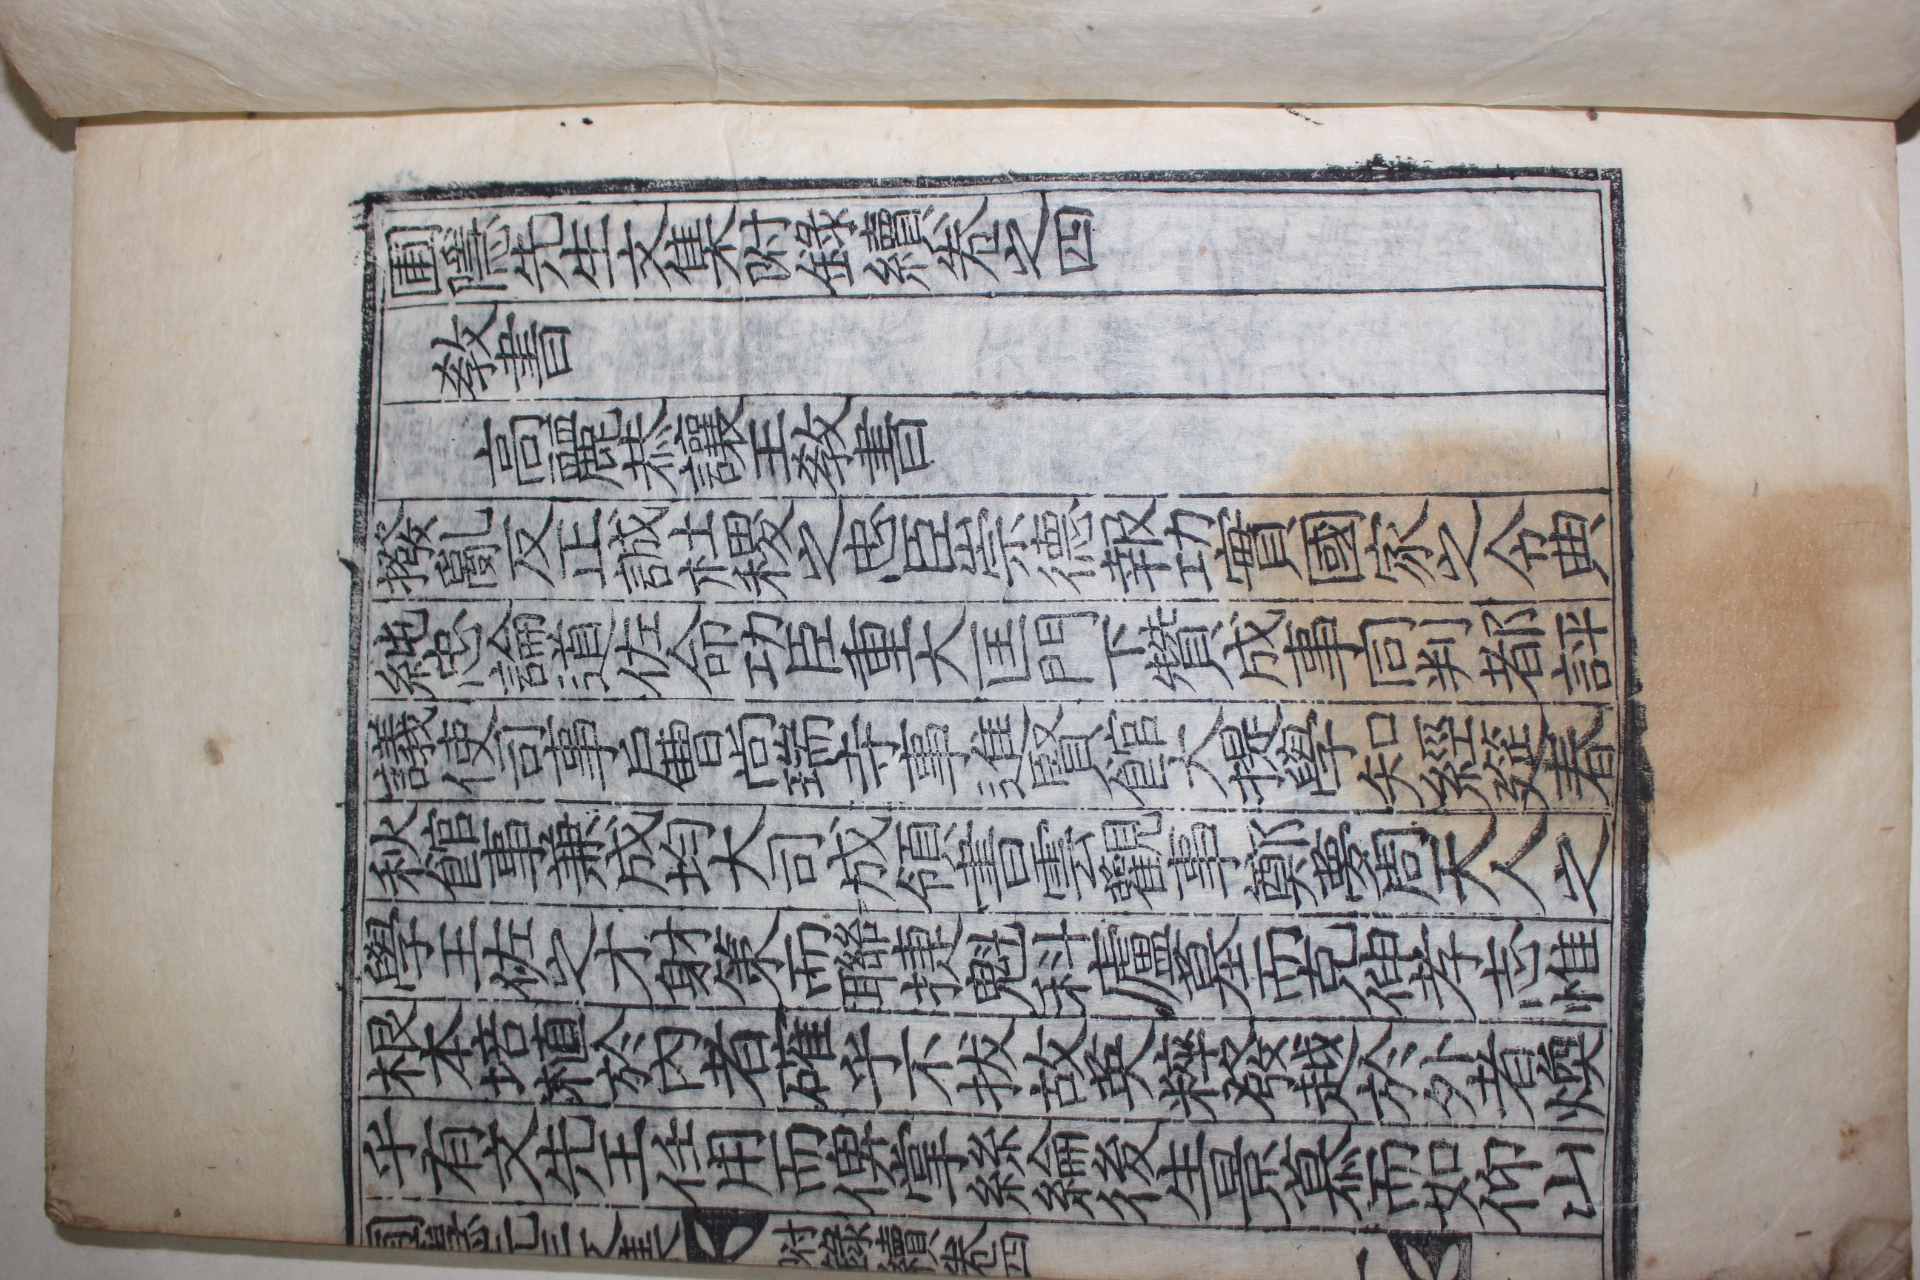 圃隱先生文集附錄續卷之四
敎書
高麗恭讓王敎書
撥亂反正誠社稷之忠臣崇德報功實國家之令典
純忠論道佐命功臣重大匡門下贊成事同判都評
議使司事戶曹尙瑞寺事進賢館大提學知經筵春
秋館事兼成均大司成領書雲觀事鄭夢周天人之
學王佐之才射策而聯捷魁科廬墓而克伸孝志惟
根本培植於內者確乎不拔故英粹發越於外者煥
乎有文先王任用而俾掌絲綸後生景慕而如仰山
圃隱先生文集 附錄續卷四 一